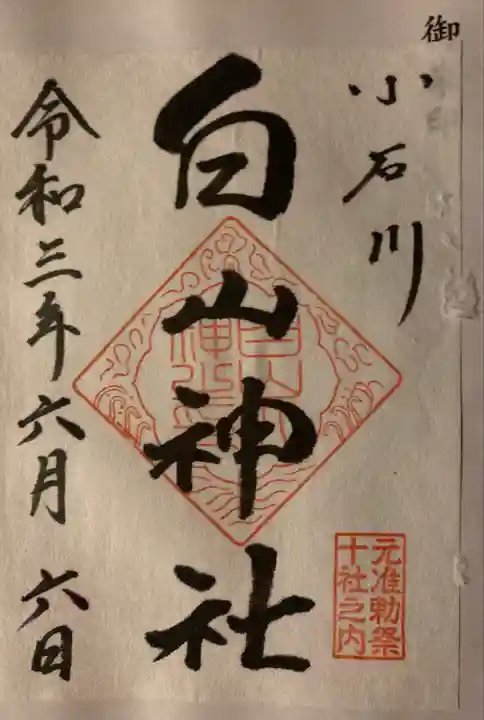 御
小石川
白山神社
元准勅祭
十社之内
令和三年六月六日